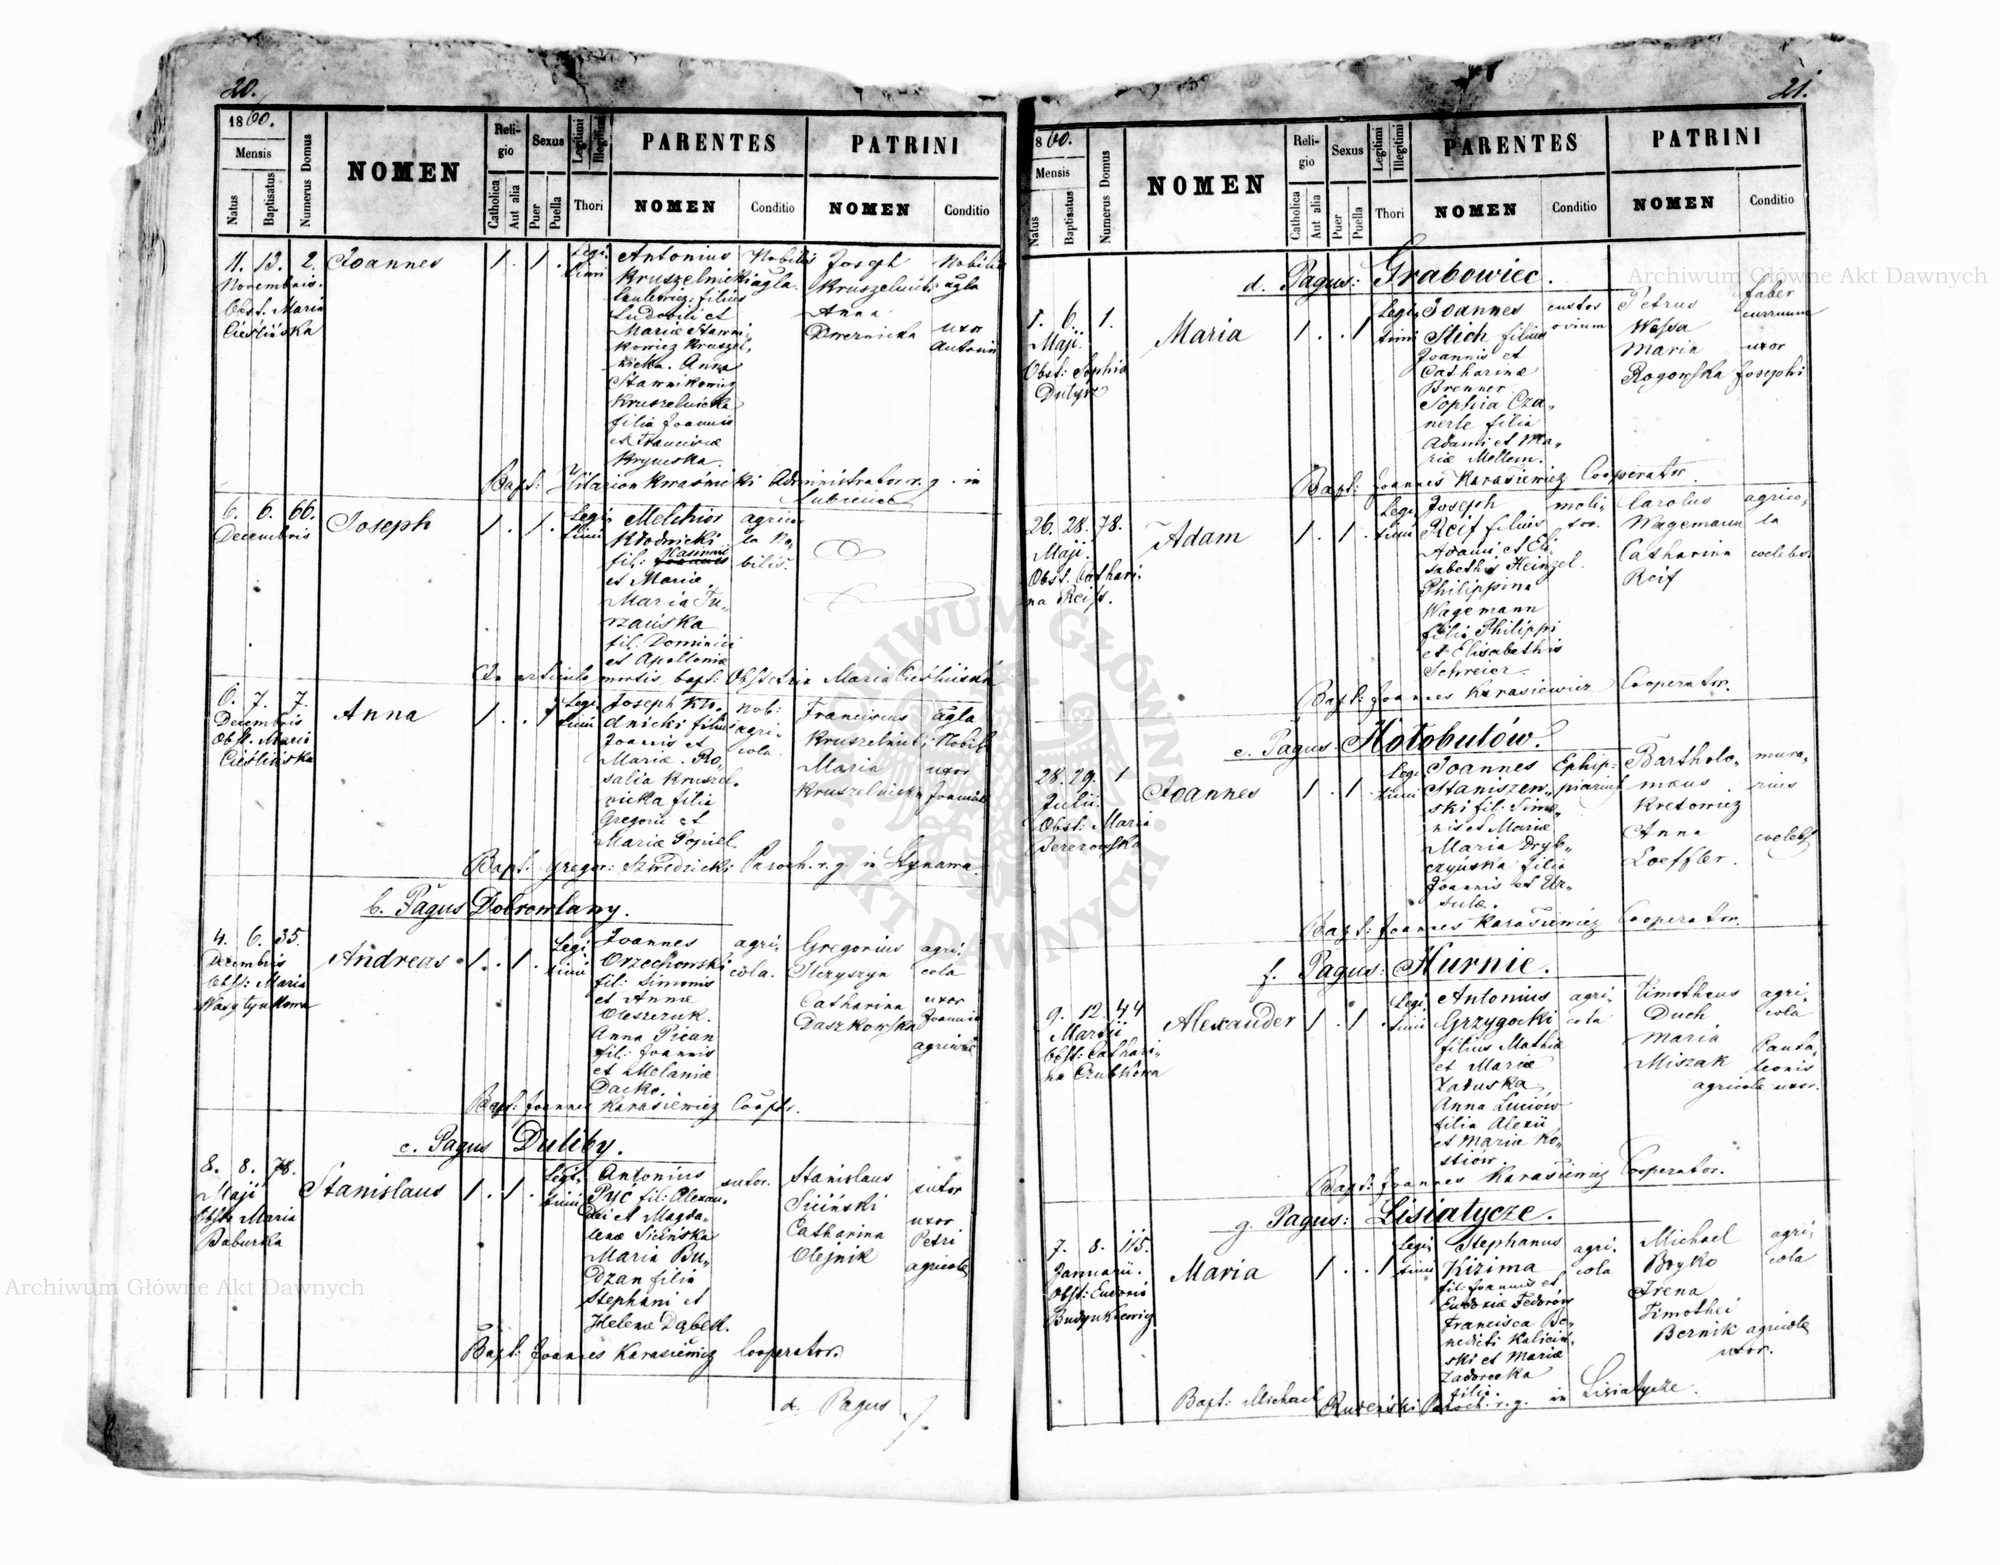 20.
1860.
Mensis
Natus
Baptisatus
Numerus Domus
NOMEN
Religio
Catholica
Aut alia
Sexus
Puer
Puella
Legitimi
Illegitimi
Thori
PARENTES
NOMEN
Conditio
PATRINI
NOMEN
Conditio
11. 13. 2.
Novembris.
Obst. Maria
Cieślińska
Joannes
1. 1.
Legitimi
Antonius
Kruszelnicki
filius
Ludovici et
Mariæ Stawni-
kowicz Kruszel-
nicka. Anna
Stawnikowicz
Kruszelnicka
filia Joannis
et Franciscæ
Nobilis
agla.
Joseph
Kruszelnicki
Anna
Dwernicka
Nobilis
agla
uxor
Antonii
Bapt: Hilarion Kwaśnicki Administrator r. g. in
6. 6. 66.
Decembris
Joseph
1. 1.
Legitimi
Melchior
Kłodnicki
fil: Casimiri
et Mariæ.
Maria Tu-
rzańska
fil: Dominici
et Apolloniæ
agrico-
la No-
bilis.
In articulo mortis bapt: Obstetrix Maria Cieślińska
6. 7. 7.
Decembris
Obst. Maria
Cieślińska
Anna
1. . 1
Legitimi
Joseph Kło-
dnicki filius
Joannis et
Mariæ. Ro-
salia Kruszel-
nicka filia
Gregorii et
Mariæ Popiel
Nob:
agri-
cola.
Franciscus
Kruszelnicki
Maria
Kruszelnicka
agla
Nobil
uxor
Joannis
Bapt: Gregor: Paroch. r. g. in Stynawa.
b. Pagus Dobrowlany.
4. 6. 35.
Decembris
Obst: Maria
Wasylynkowa
Andreas
1. . 1.
Legitimi
Joannes
Orzechowski
fil: Simonis
et Annæ
Oleszczuk.
Anna Pican
fil: Joannis
et Melaniæ
Dacko.
agri-
cola.
Gregorius
Hryszyn
Catharina
Daszkowska
agri-
cola
uxor
Joannis
agricolæ
Bapt: Joannes Karasiewicz Cooptr.
c. Pagus Duliby.
8. 8. 78.
Maji
Obst: Maria
Baburka
Stanislaus
1. . 1.
Legitimi
Antonius
Pyć fil: Alexan-
dri et Magda-
lenæ Sicińska
Maria Bu-
dzan filia
Stephani et
Helenæ Dąbek.
sutor.
Stanislaus
Siciński
Catharina
Olejnik
sutor
uxor
Petri
agricolæ
Bapt: Joannes Karasiewicz Cooperator.
d. Pagus
21.
1860.
Mensis
Natus
Baptisatus
Numerus Domus
NOMEN
Religio
Catholica
Aut alia
Sexus
Puer
Puella
Legitimi
Illegitimi
Thori
PARENTES
NOMEN
Conditio
PATRINI
NOMEN
Conditio
d. Pagus: Grabowiec.
1. 6. 1.
Maji.
Obst: Sophia
Maria
1. . 1
Legitimi
Joannes
Stich filius
Joannis et
Catharinæ
Brenner
Sophia Cza-
nerle filia
Adami et Ma-
riæ Mellem.
custos
ovium
Petrus
Wessa
Maria
Rogowska
faber
curruum
uxor
Josephi
Bapt: Joannes Karasiewicz Cooperator.
26. 28. 78.
Maji.
Obst. Cathari-
na Reiss.
Adam
1. . 1.
Legitimi
Joseph
Reif filius
Adami et Eli-
sabethis Heinzel.
Philippina
Wagemann
filia Philippi
et Elisabethis
Schreier
moli-
tor.
Carolus
Wagemann
Catharina
Reif
agrico-
la
coelebs.
Bapt: Joannes Karasiewicz Cooperator.
e. Pagus Hołobutów.
28. 29. 1
Julii.
Obst: Maria
Berezowska
Joannes
1. . 1.
Legitimi
Joannes
Staniszew-
ski fil: Simo-
nis et Mariæ
Maria Dryb-
czyńska filia
Joannis et Ur-
sulæ.
Ephip-
piarius
Bartholo-
mæus
Kretowicz
Anna
Loeffler.
mura-
rius
coelebs
Bapt: Joannes Karasiewicz Cooperator.
f. Pagus: Hurnie.
9. 12. 44
Martii
Obst: Cathari-
na Czubkowa
Alexander
1 . 1.
Legitimi
Antonius
Grzygocki
filius Mathiæ
et Mariæ
Załuska
Anna Luciów
filia Alexii
et Mariæ Ko-
stiów.
agri-
cola
Timotheus
Duch
Maria
Miszak
agricolæ uxor.
agri-
cola
Panta-
leonis
Bapt: Joannes Karasiewicz Cooperator.
g. Pagus: Lisiatycze.
7. 8. 115.
Januarii.
Obst: Eudoxia
Budynkiewicz
Maria
1 . . 1
Legitimi
Stephanus
Kizima
fil: Joannis et
Eudoxiæ Fedorów
Francisca Be-
nedicti Kalicin-
ski et Mariæ
Zadorecka
filia.
agri-
cola
Michael
Boyko
Irena
Timothei
Bernik agricolæ
uxor.
agri-
cola
Bapt: Michael Rudeński Paroch. r. g. in Lisiatycze.
Archiwum Główne Akt Dawnych
Archiwum Główne Akt Dawnych
ARCHIWUM GŁÓWNE
AKT DAWNYCH